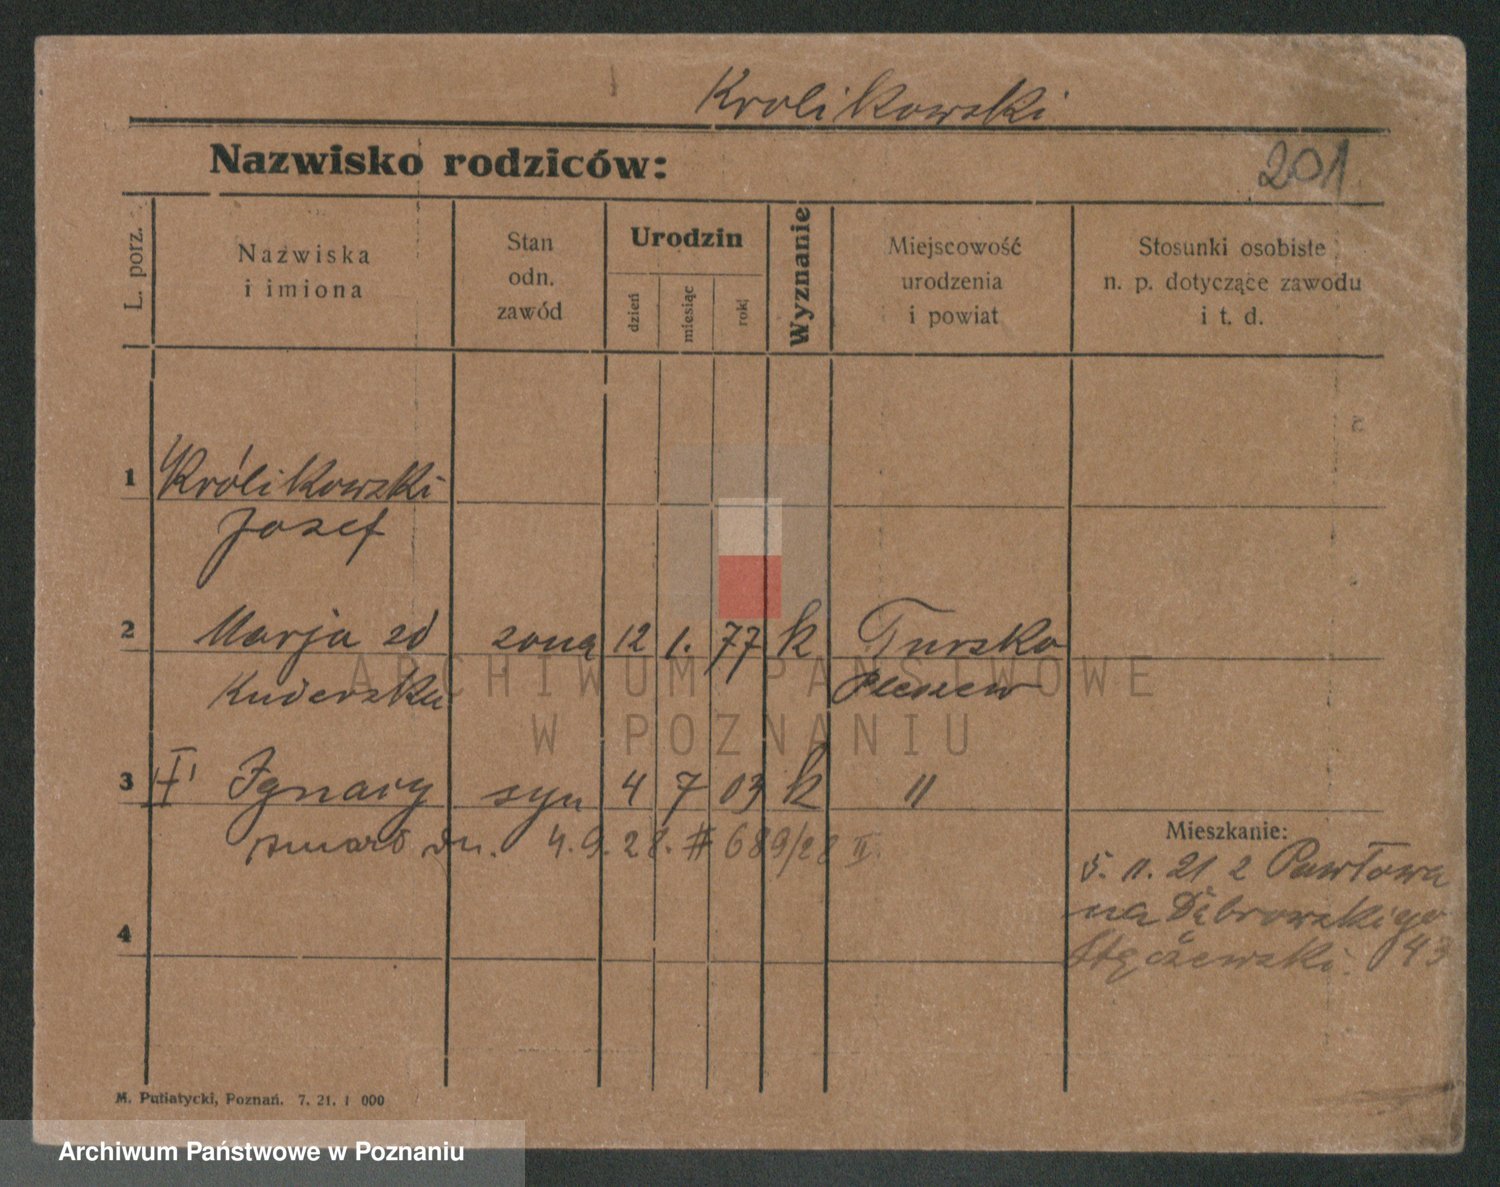 Krolikowski
Nazwisko rodziców:
201
L. porz.
Nazwiska
i imiona
Stan
odn.
zawód
Urodzin
dzień
miesiąc
rok
Wyznanie
Miejscowość
urodzenia
i powiat
Stosunki osobiste
n. p. dotyczące zawodu
i t. d.
1 Królikowski
Josef
2 Marja zd żona 12 1. 77 k Tursko
Kuderska Pleszew
3 Ignacy syn 4 7 03 k "
zmarł dn. 4.9.28. # 689/28 II.
Mieszkanie:
5. 11. 21 z Pawłowa
na Dąbrowskiego
43
4
M. Putiatycki, Poznań. 7. 21. 1 000
ARCHIWUM PAŃSTWOWE
W POZNANIU
Archiwum Państwowe w Poznaniu